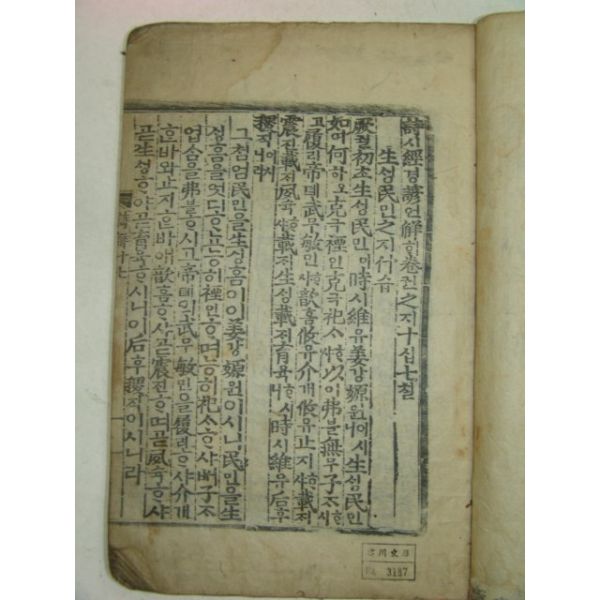 詩시經경諺언解ᄒᆡ卷권之지十십七칠
生ᄉᆡᆼ民민之지什습
厥궐初초生ᄉᆡᆼ民민이時시維유姜강嫄원이시니生ᄉᆡᆼ民민
如여何하오克극禋인克극祀ᄉᆞᄒᆞ샤以이弗불無무子ᄌᆞᄒᆞ시
고履리帝뎨武무敏민歆흠ᄒᆞ샤攸유介개攸유止지ᄒᆞ샤載ᄌᆡ
震진載ᄌᆡ夙슉ᄒᆞ샤載ᄌᆡ生ᄉᆡᆼ載ᄌᆡ育육ᄒᆞ시니時시維유后후
稷직이시니라
그처엄民민을生ᄉᆡᆼ홈이이姜강嫄원이시니民민을生
ᄉᆡᆼ홈을엇디ᄒᆞ뇨능히禋인ᄒᆞ며능히祀ᄉᆞᄒᆞ샤ᄡᅥ子ᄌᆞ
업슴을弗불ᄒᆞ시고帝뎨의武무敏민을履리ᄒᆞ샤介개
ᄒᆞᆫ바와止지ᄒᆞᆫ바애歆흠ᄒᆞ샤곧震진ᄒᆞ며곧夙슉ᄒᆞ샤
곧生ᄉᆡᆼᄒᆞ야곧育육ᄒᆞ시니이后후稷직이시니라
3187